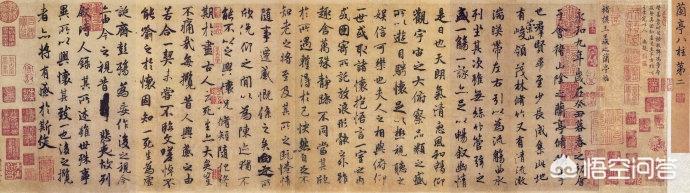 蘭亭八柱第二
褚模王羲之蘭亭帖
永和九年歲在癸丑暮春之初會
于會稽山陰之蘭亭脩稧事
也群賢畢至少長咸集此地
有崇山峻領茂林脩竹又有清流激
湍暎帶左右引以為流觴曲水
列坐其次雖無絲竹管弦之
盛一觴一詠亦足以暢敘幽情
是日也天朗氣清惠風和暢仰
觀宇宙之大俯察品類之盛
所以遊目騁懷足以極視聽之
娛信可樂也夫人之相與俯仰
一世或取諸懷抱悟言一室之內
或因寄所託放浪形骸之外雖
趣舍萬殊靜躁不同當其欣
於所遇暫得於己怏然自足不
知老之將至及其所之既惓情
隨事遷感慨係之矣向之所
欣俛仰之間以為陳迹猶不
能不以之興懷況脩短隨化終
期於盡古人云死生亦大矣豈
不痛哉每攬昔人興感之由
若合一契未嘗不臨文嗟悼不
能喻之於懷固知一死生為虛
誕齊彭殤為妄作後之視今
亦由今之視昔悲夫故列
敘時人錄其所述雖世殊事
異所以興懷其致一也後之攬
者亦將有感於斯文
悟空问答